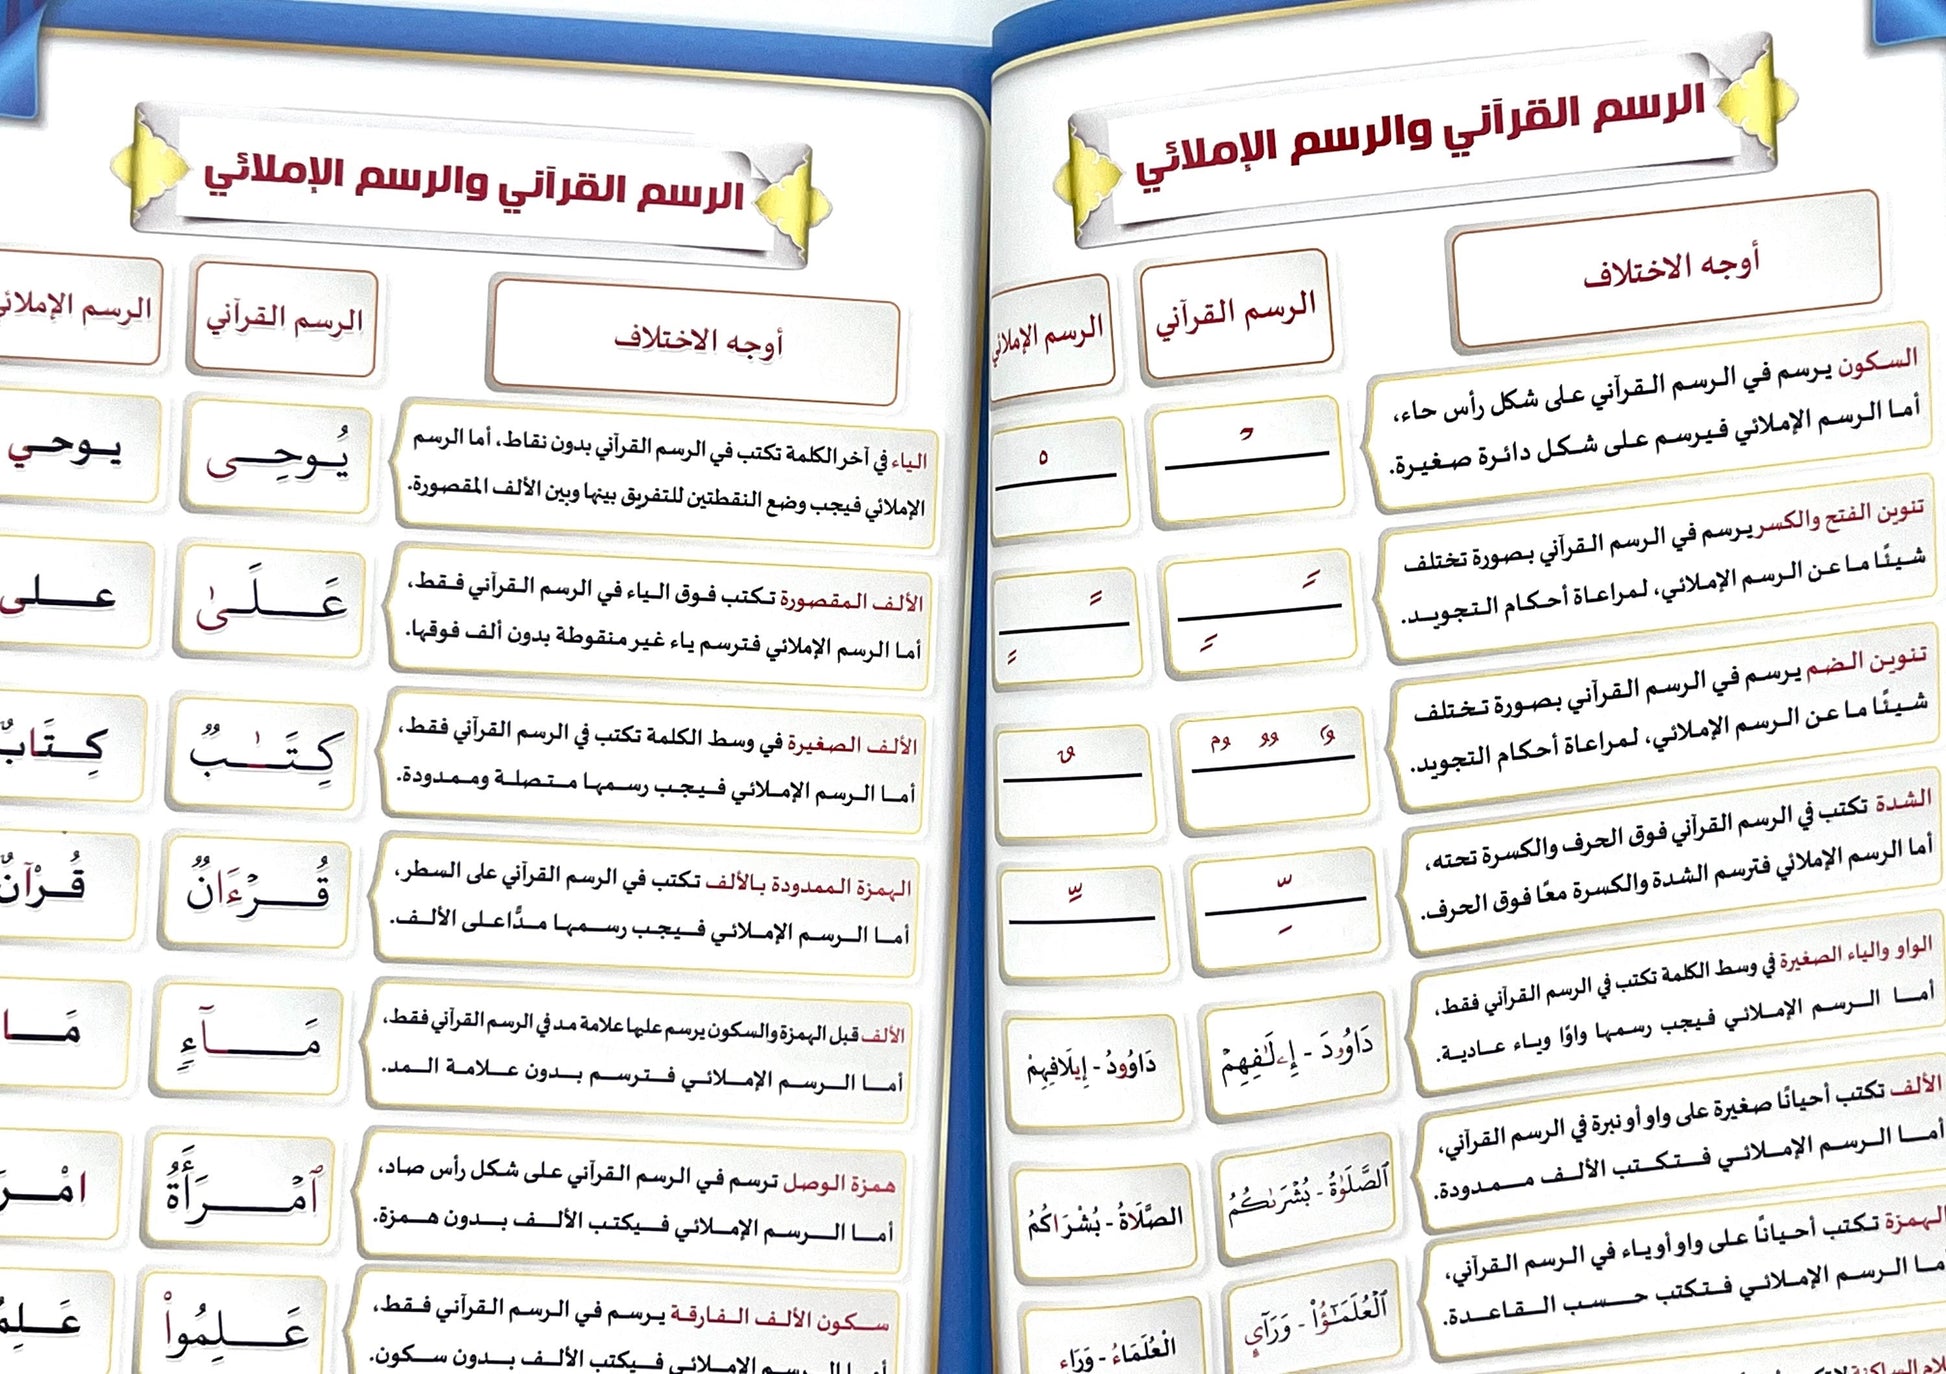 الرسم القرآني والرسم الإملائي
أوجه الاختلاف
الرسم القرآني
الرسم الإملائي
السكون يرسم في الرسم القرآني على شكل رأس حاء،
أما الرسم الإملائي فيرسم على شكل دائرة صغيرة.
تنوين الفتح والكسر يرسم في الرسم القرآني بصورة تختلف
شيئًا ما عن الرسم الإملائي، لمراعاة أحكام التجويد.
تنوين الضم يرسم في الرسم القرآني بصورة تختلف
شيئًا ما عن الرسم الإملائي، لمراعاة أحكام التجويد.
الشدة تكتب في الرسم القرآني فوق الحرف والكسرة تحته،
أما الرسم الإملائي فترسم الشدة والكسرة معًا فوق الحرف.
الواو والياء الصغيرة في وسط الكلمة تكتب في الرسم القرآني فقط،
أما الرسم الإملائي فيجب رسمها واوًا وياء عادية.
دَاوُۥدَ - إِۦلَٰفِهِمۡ
دَاوُودُ - إِيلَافِهِمْ
الألف تكتب أحيانًا صغيرة على واو أو نبرة في الرسم القرآني،
أما الرسم الإملائي فتكتب الألف ممدودة.
ٱلصَّلَوٰةُ - بُشۡرَىٰكُمُ
الصَّلَاةُ - بُشْرَاكُمُ
الهمزة تكتب أحيانًا على واو أو ياء في الرسم القرآني،
أما الرسم الإملائي فتكتب حسب القاعدة.
ٱلۡعُلَمَٰٓؤُاْ - وَرَآيِٕ
الْعُلَمَاءُ - وَرَاء
الرسم القرآني والرسم الإملائي
أوجه الاختلاف
الرسم القرآني
الرسم الإملائي
الياء في آخر الكلمة تكتب في الرسم القرآني بدون نقاط، أما الرسم
الإملائي فيجب وضع النقطتين للتفريق بينها وبين الألف المقصورة.
يُوحِى
يوحي
الألف المقصورة تكتب فوق الياء في الرسم القرآني فقط،
أما الرسم الإملائي فترسم ياء غير منقوطة بدون ألف فوقها.
عَلَىٰ
على
الألف الصغيرة في وسط الكلمة تكتب في الرسم القرآني فقط،
أما الرسم الإملائي فيجب رسمها متصلة وممدودة.
كِتَٰبٌ
كِتَابٌ
الهمزة الممدودة بالألف تكتب في الرسم القرآني على السطر،
أما الرسم الإملائي فيجب رسمها مدًّا على الألف.
قُرۡءَانٌ
قُرْآنٌ
الألف قبل الهمزة والسكون يرسم عليها علامة مد في الرسم القرآني فقط،
أما الرسم الإملائي فترسم بدون علامة المد.
مَآءٍ
همزة الوصل ترسم في الرسم القرآني على شكل رأس صاد،
أما الرسم الإملائي فيكتب الألف بدون همزة.
ٱمۡرَأَةٌ
سكون الألف الفارقة يرسم في الرسم القرآني فقط،
أما الرسم الإملائي فيكتب الألف بدون سكون.
عَلِمُواْ